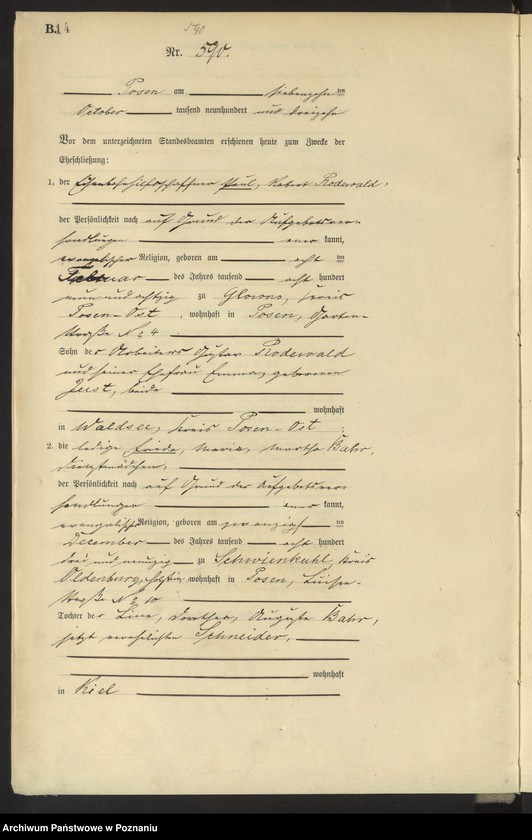 B.14
590
Nr. 590.
Posen am siebenzehn ten
October tausend neunhundert und dreizehn
Vor dem unterzeichneten Standesbeamten erschienen heute zum Zwecke der
Eheschließung:
1. der Eisenbahnhilfsschaffner Paul, Robert Rodewald,
der Persönlichkeit nach auf Grund der Aufgebotsver-
handlungen aner kannt,
evangelischer Religion, geboren am acht ten
Februar des Jahres tausend acht hundert
neun und achtzig zu Glowno, Kreis
Posen-Ost, wohnhaft in Posen, Garten-
straße No 4
Sohn des Arbeiters Gustav Rodewald
und seiner Ehefrau Emma, geborenen
Just, beide
wohnhaft
in Waldsee, Kreis Posen-Ost;
2. die ledige Frieda, Maria, Martha Bahr,
Dienstmädchen,
der Persönlichkeit nach auf Grund der Aufgebotsver-
handlungen aner kannt,
evangelischer Religion, geboren am zwanzigs ten
December des Jahres tausend acht hundert
drei und neunzig zu Schwienkuhl, Kreis
Oldenburg, Holstein, wohnhaft in Posen, Luisen-
straße No 10
Tochter der Line, Dorothea, Auguste Bahr,
jetzt verehelichten Schneider,
wohnhaft
in Kiel
Archiwum Państwowe w Poznaniu